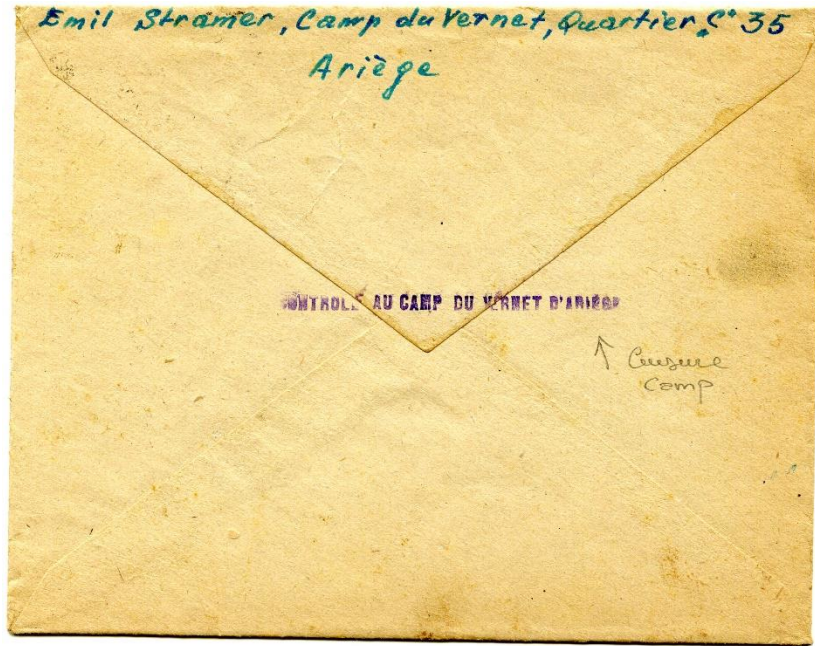 Emil Stramer, Camp du Vernet, Quartier C 35
Ariège
CONTROLE AU CAMP DU VERNET D'ARIÈGE
↑ Censure
Camp